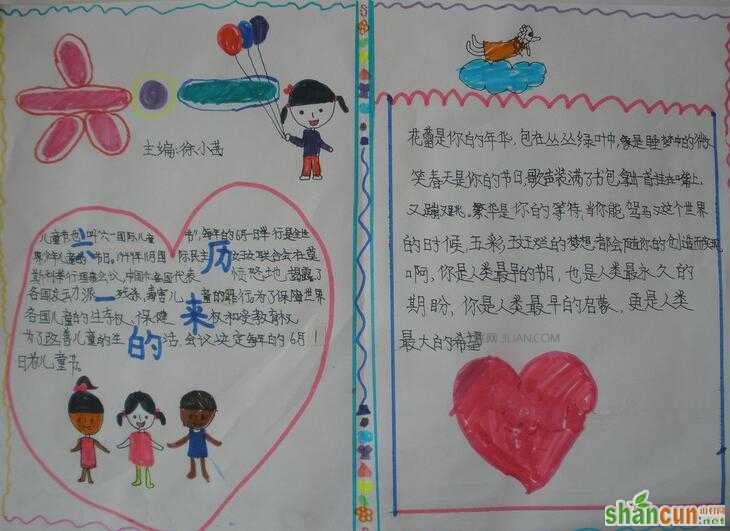 六·一
主编:徐小茜
六一的
历来
儿童节也叫六一国际儿童节,每年的6月1日举行是全世
界少年儿童的节日。1949年11月国际民主妇女联合会在莫
斯科举行国际会议,中国和各国代表愤怒地揭露了
各国反动派残杀、毒害儿童的罪行为了保障世界
各国儿童的生存权、保健权和受教育权
为了改善儿童的生活,会议决定每年的6月1
日为儿童节
花蕾是你的年华,包在丛丛绿叶中,像是睡梦中的微
笑春天是你的节日,歌声装满了书包,拿一首挂在嘴上
又蹦又跳。繁华是你的等待,当你能驾驭这个世界
的时候,五彩斑斓的梦想,都会随你的创造而实现
啊,你是人类最早的节日,也是人类最永久的
期盼,你是人类最早的启蒙,更是人类
最大的希望
3LIAN.COM
shancun